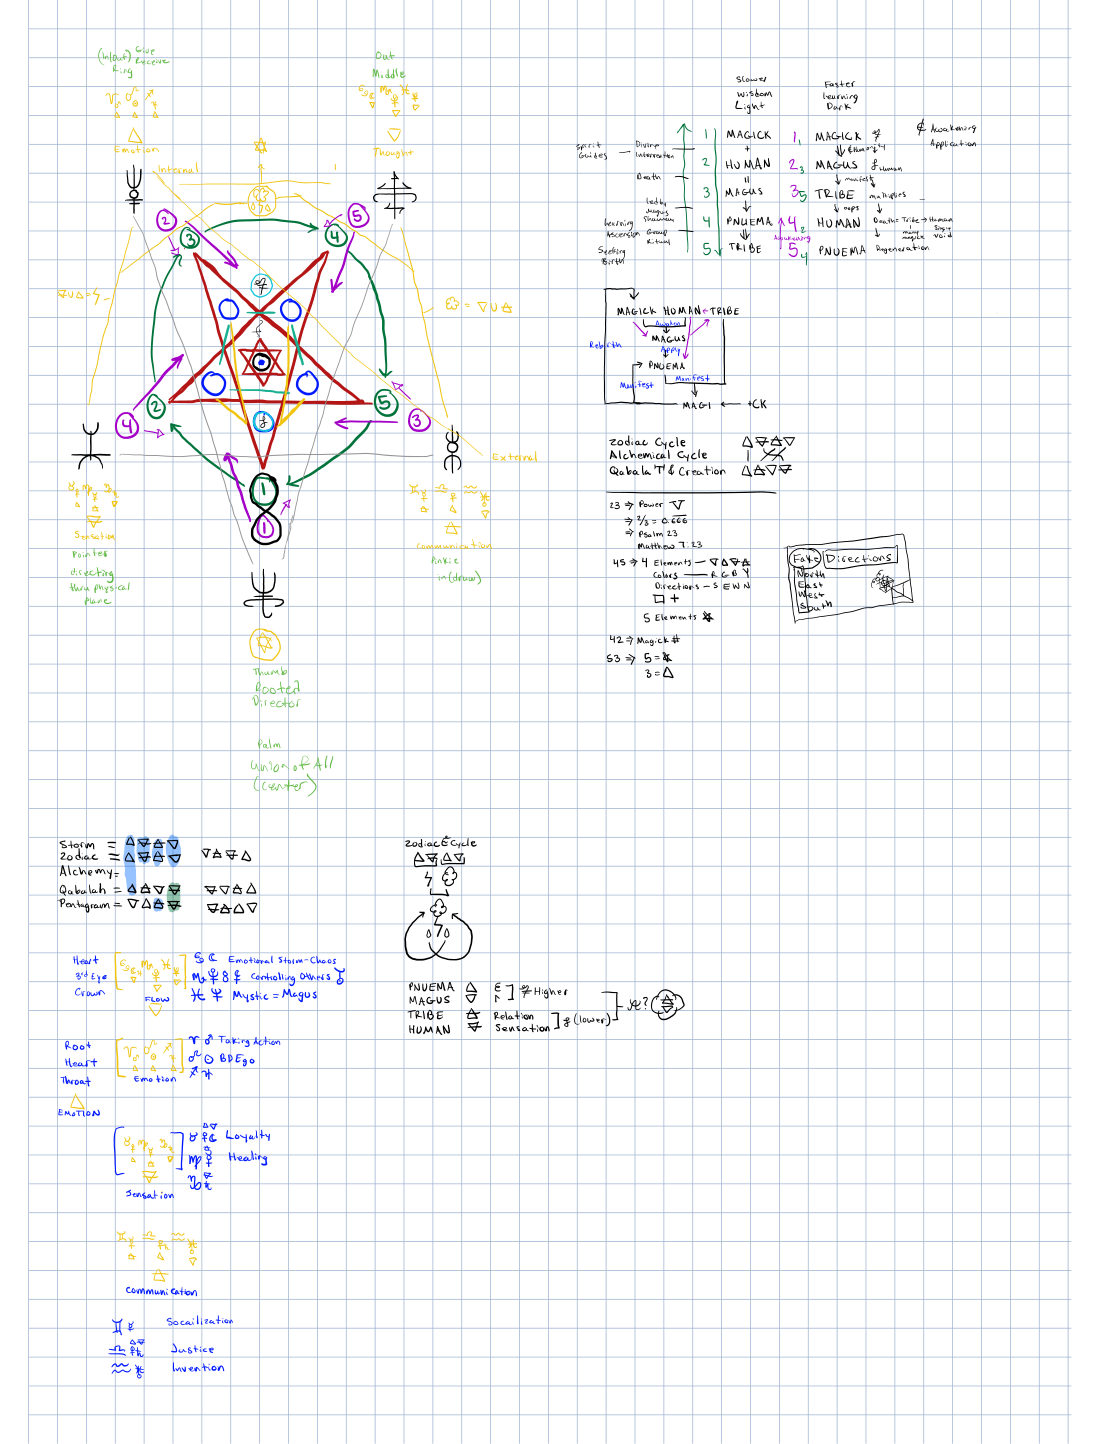 (In/Out) Give
Receive
Ring
Emotion
Out
Middle
Thought
Internal
2
3
4
5
2
4
5
3
1
1
External
Sensation
Pointer
directing
thru physical
plane
Communication
Pinkie
in(draw)
Thumb
Rooted
Director
Palm
Union of All
(center)
Slower
Wisdom
Light
Faster
Learning
Dark
Spirit
Guides
Divine
Intervention
Death
Led by
Magus
Shaman
Learning
Ascension
Group
Rituals
Seeking
Birth
1 MAGICK
+
2 HUMAN
=
3 MAGUS
4 PNUEMA
5 TRIBE
1 MAGICK
2 3 MAGUS
Human
manifest
3 5 TRIBE
multiplies
oops
4 2 HUMAN
Death = Tribe → Human
many
magick
Single
Void
Awakening
5 4 PNUEMA Regeneration
& Awakening
Application
MAGICK HUMAN + TRIBE
Awaken
MAGUS
Apply
PNUEMA
Rebirth
Manifest
Manifest
MAGI ← +CK
Zodiac Cycle △ ▽ △ ▽
Alchemical Cycle
Qabala "T" & Creation
23 ⇒ Power ▽
⇒ 2/3 = 0.666
⇒ Psalm 23
Matthew 7:23
45 ⇒ 4 Elements —
Colors — R G B Y
Directions — S E W N
□ +
5 Elements
42 ⇒ Magick #
53 ⇒ 5 =
3 = △
Fake Directions
North
East
West
South
Storm =
Zodiac =
Alchemy =
Qabalah =
Pentagram =
Zodiac Cycle
Heart
3rd Eye
Crown
FLOW
♋ ☾ Emotional Storm-Chaos
Controlling Others
♓ ♆ Mystic = Magus
PNUEMA △
MAGUS ▽
Higher
TRIBE Relation
HUMAN Sensation
(lower)
Root
Heart
Throat
EMOTION
Emotion
♈ ♂ Taking Action
♌ ☉ BDEgo
♐ ♃
Loyalty
Healing
Sensation
Communication
Socailization
Justice
Invention